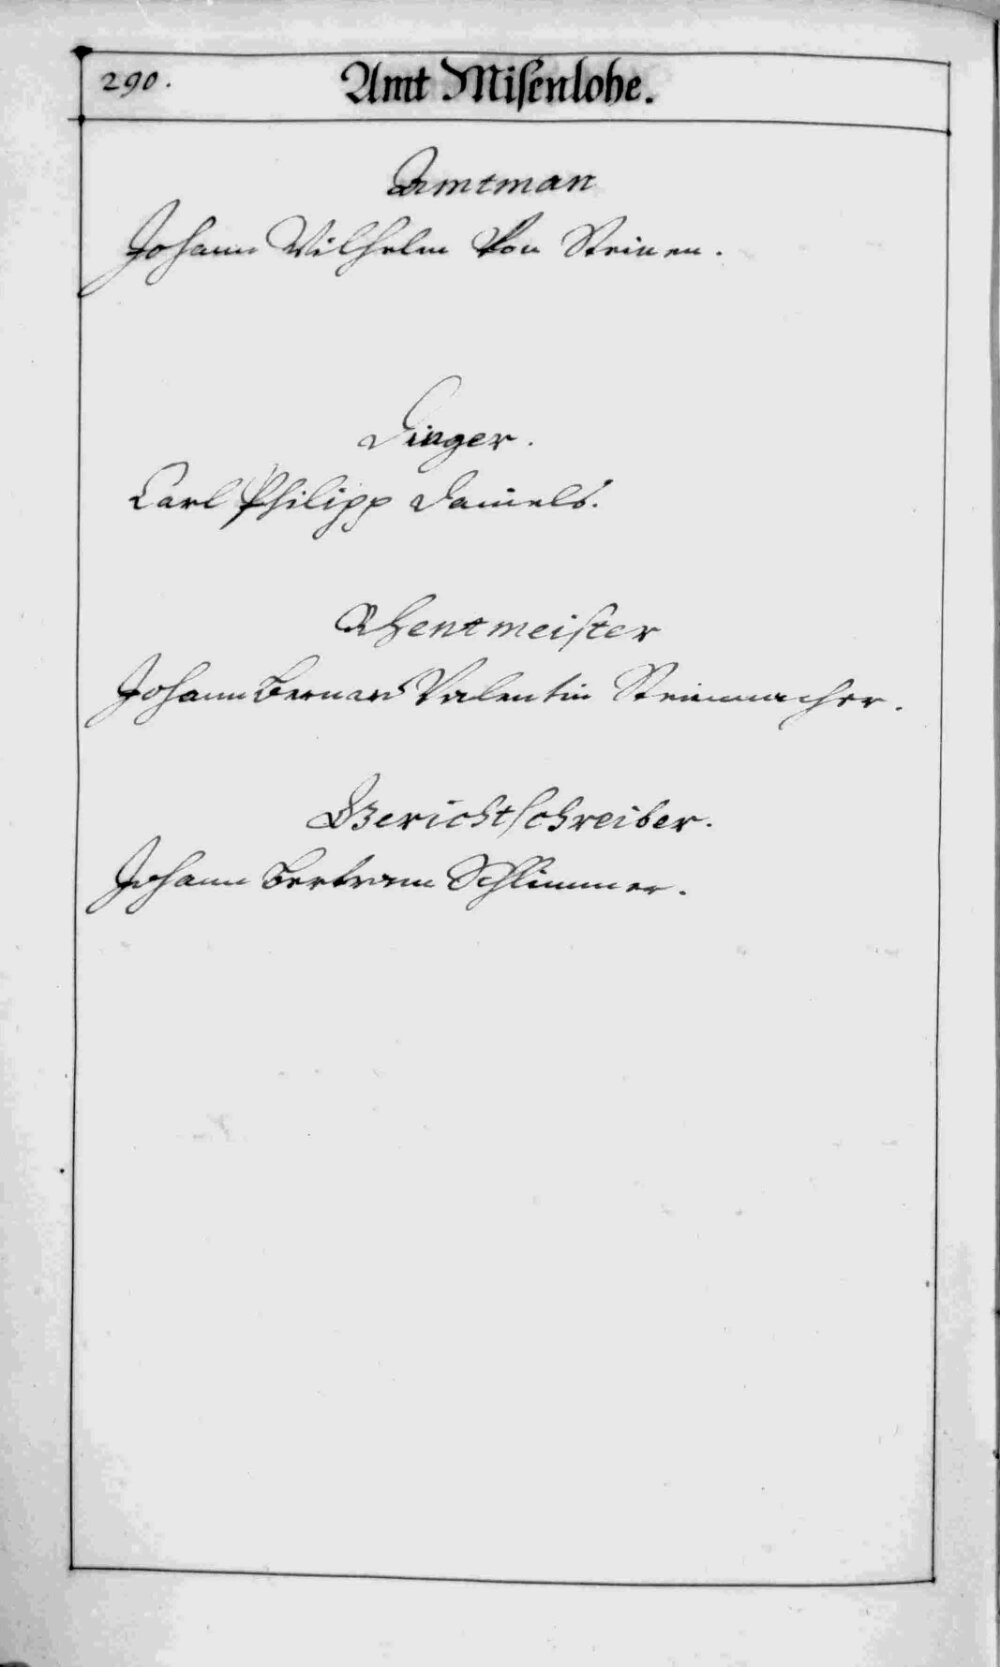 290.
Amt Misenlohe.
Amtman
Johann Wilhelm Von Steinen.
Dinger.
Carl Philipp Daniels.
Rhentmeister
Johann Bernard Valentin Steinmacher.
Gerichtschreiber.
Johann Bertram Schlimmer.